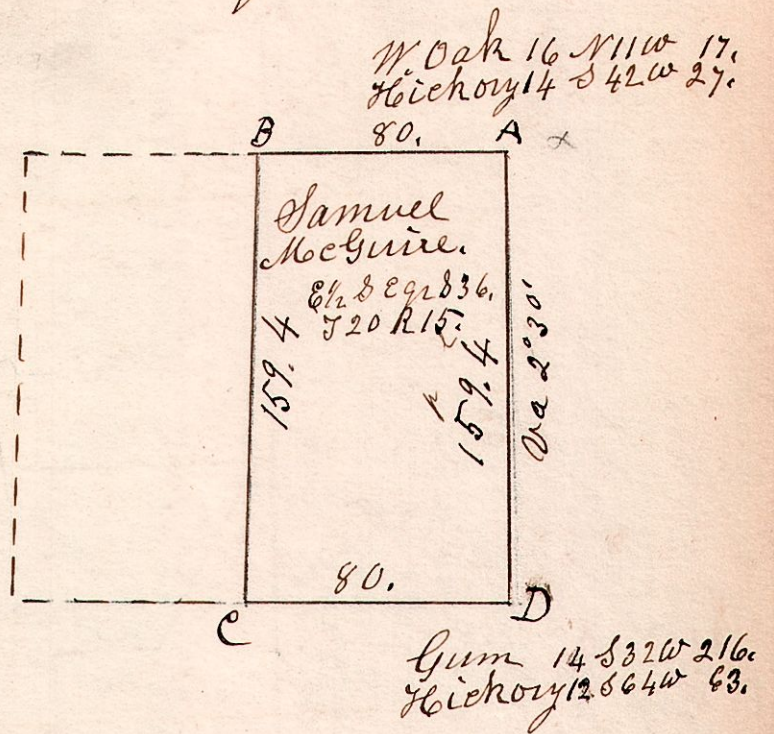 W. Oak 16 N11W 17.
Hickory 14 S42W 27.
B 80. A x
Samuel
McGuire.
E½ S E qr S 36.
T 20 R 15.
159.4
159.4
Va 2°30'
80.
C D
Gum 14 S32W 216.
Hickory 12 S64W 63.